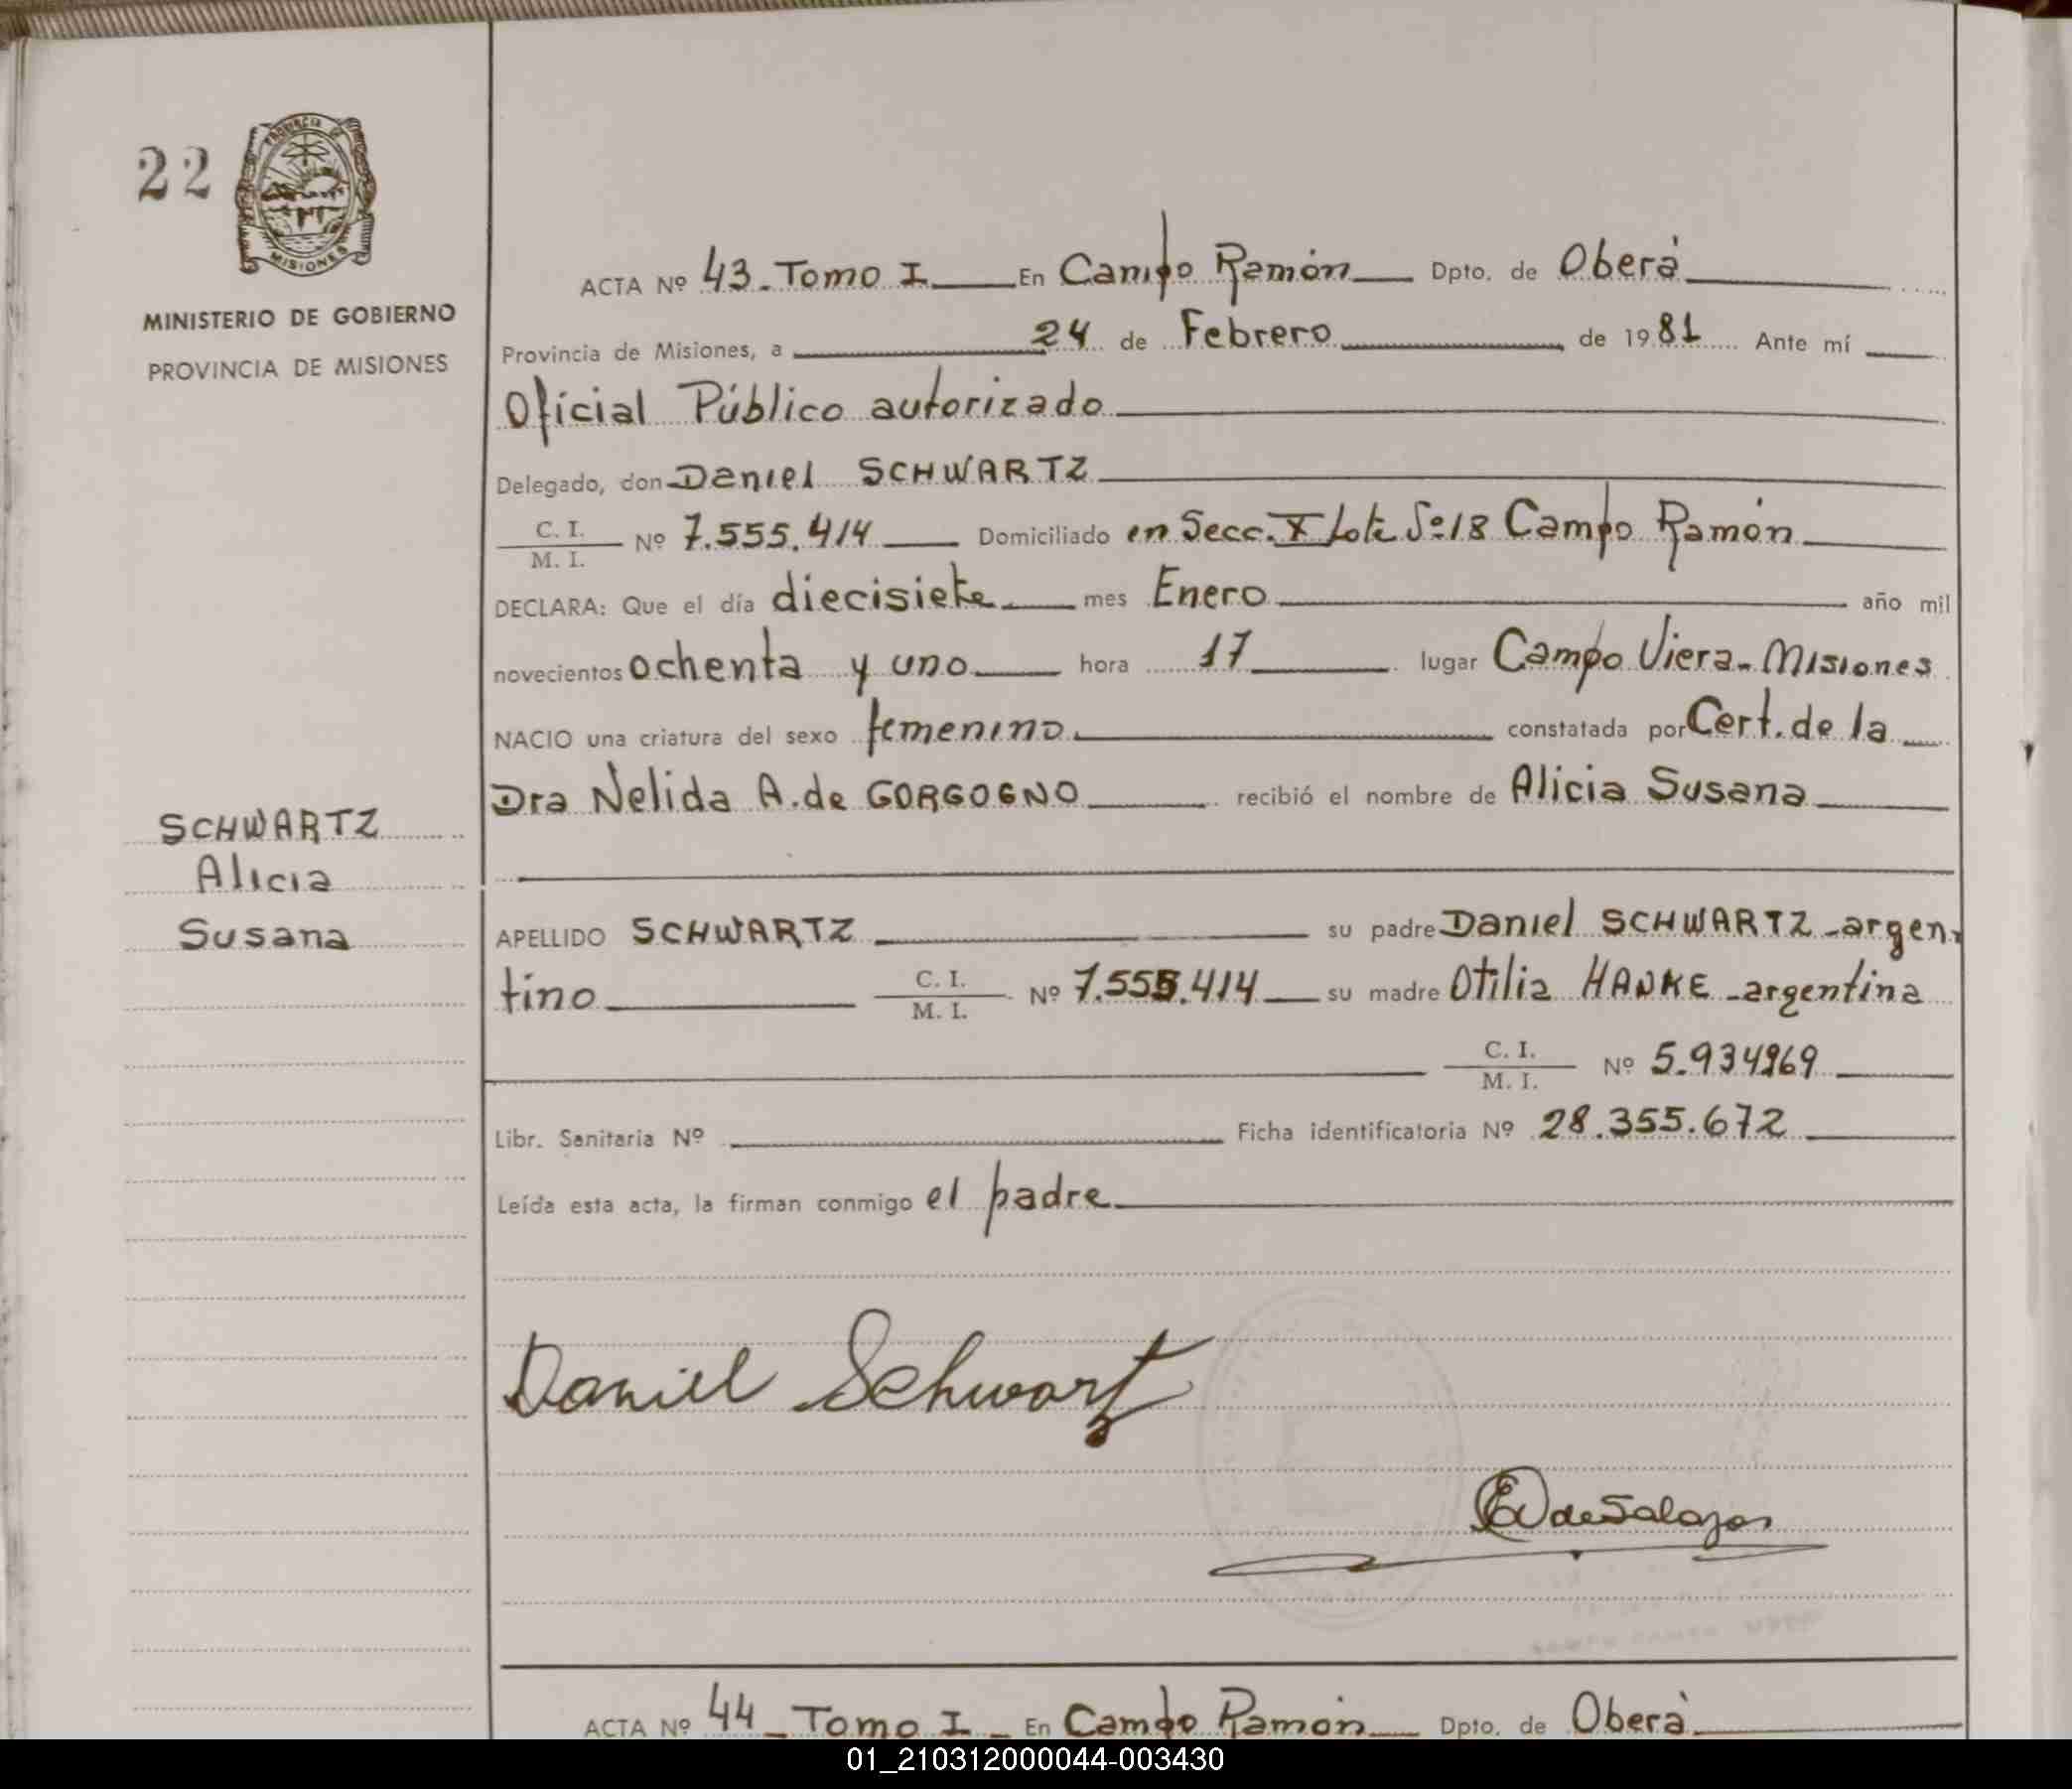 22
PROVINCIA DE
MISIONES
MINISTERIO DE GOBIERNO
PROVINCIA DE MISIONES
SCHWARTZ
Alicia
Susana
ACTA Nº 43_ Tomo I En Campo Ramón Dpto. de Oberá
Provincia de Misiones, a 24 de Febrero de 1981 Ante mí
Oficial Público autorizado
Delegado, don Daniel SCHWARTZ
C. I.
M. I. Nº 7.555.414 Domiciliado en Secc. X Lote 18 Campo Ramón
DECLARA: Que el día diecisiete mes Enero año mil
novecientos ochenta y uno hora 17 lugar Campo Viera-Misiones
NACIO una criatura del sexo femenino constatada por Cert. de la
Dra Nelida A. de GORGOGNO recibió el nombre de Alicia Susana
APELLIDO SCHWARTZ su padre Daniel SCHWARTZ -argen-
tino C. I.
M. I. Nº 7.555.414 su madre Otilia HANKE -argentina
C. I.
M. I. Nº 5.934969
Libr. Sanitaria Nº Ficha identificatoria Nº 28.355.672
Leída esta acta, la firman conmigo el padre
Daniel Schwartz
de Salazar
ACTA Nº 44 _ Tomo I _ En Campo Ramón Dpto. de Oberá
01_210312000044-003430